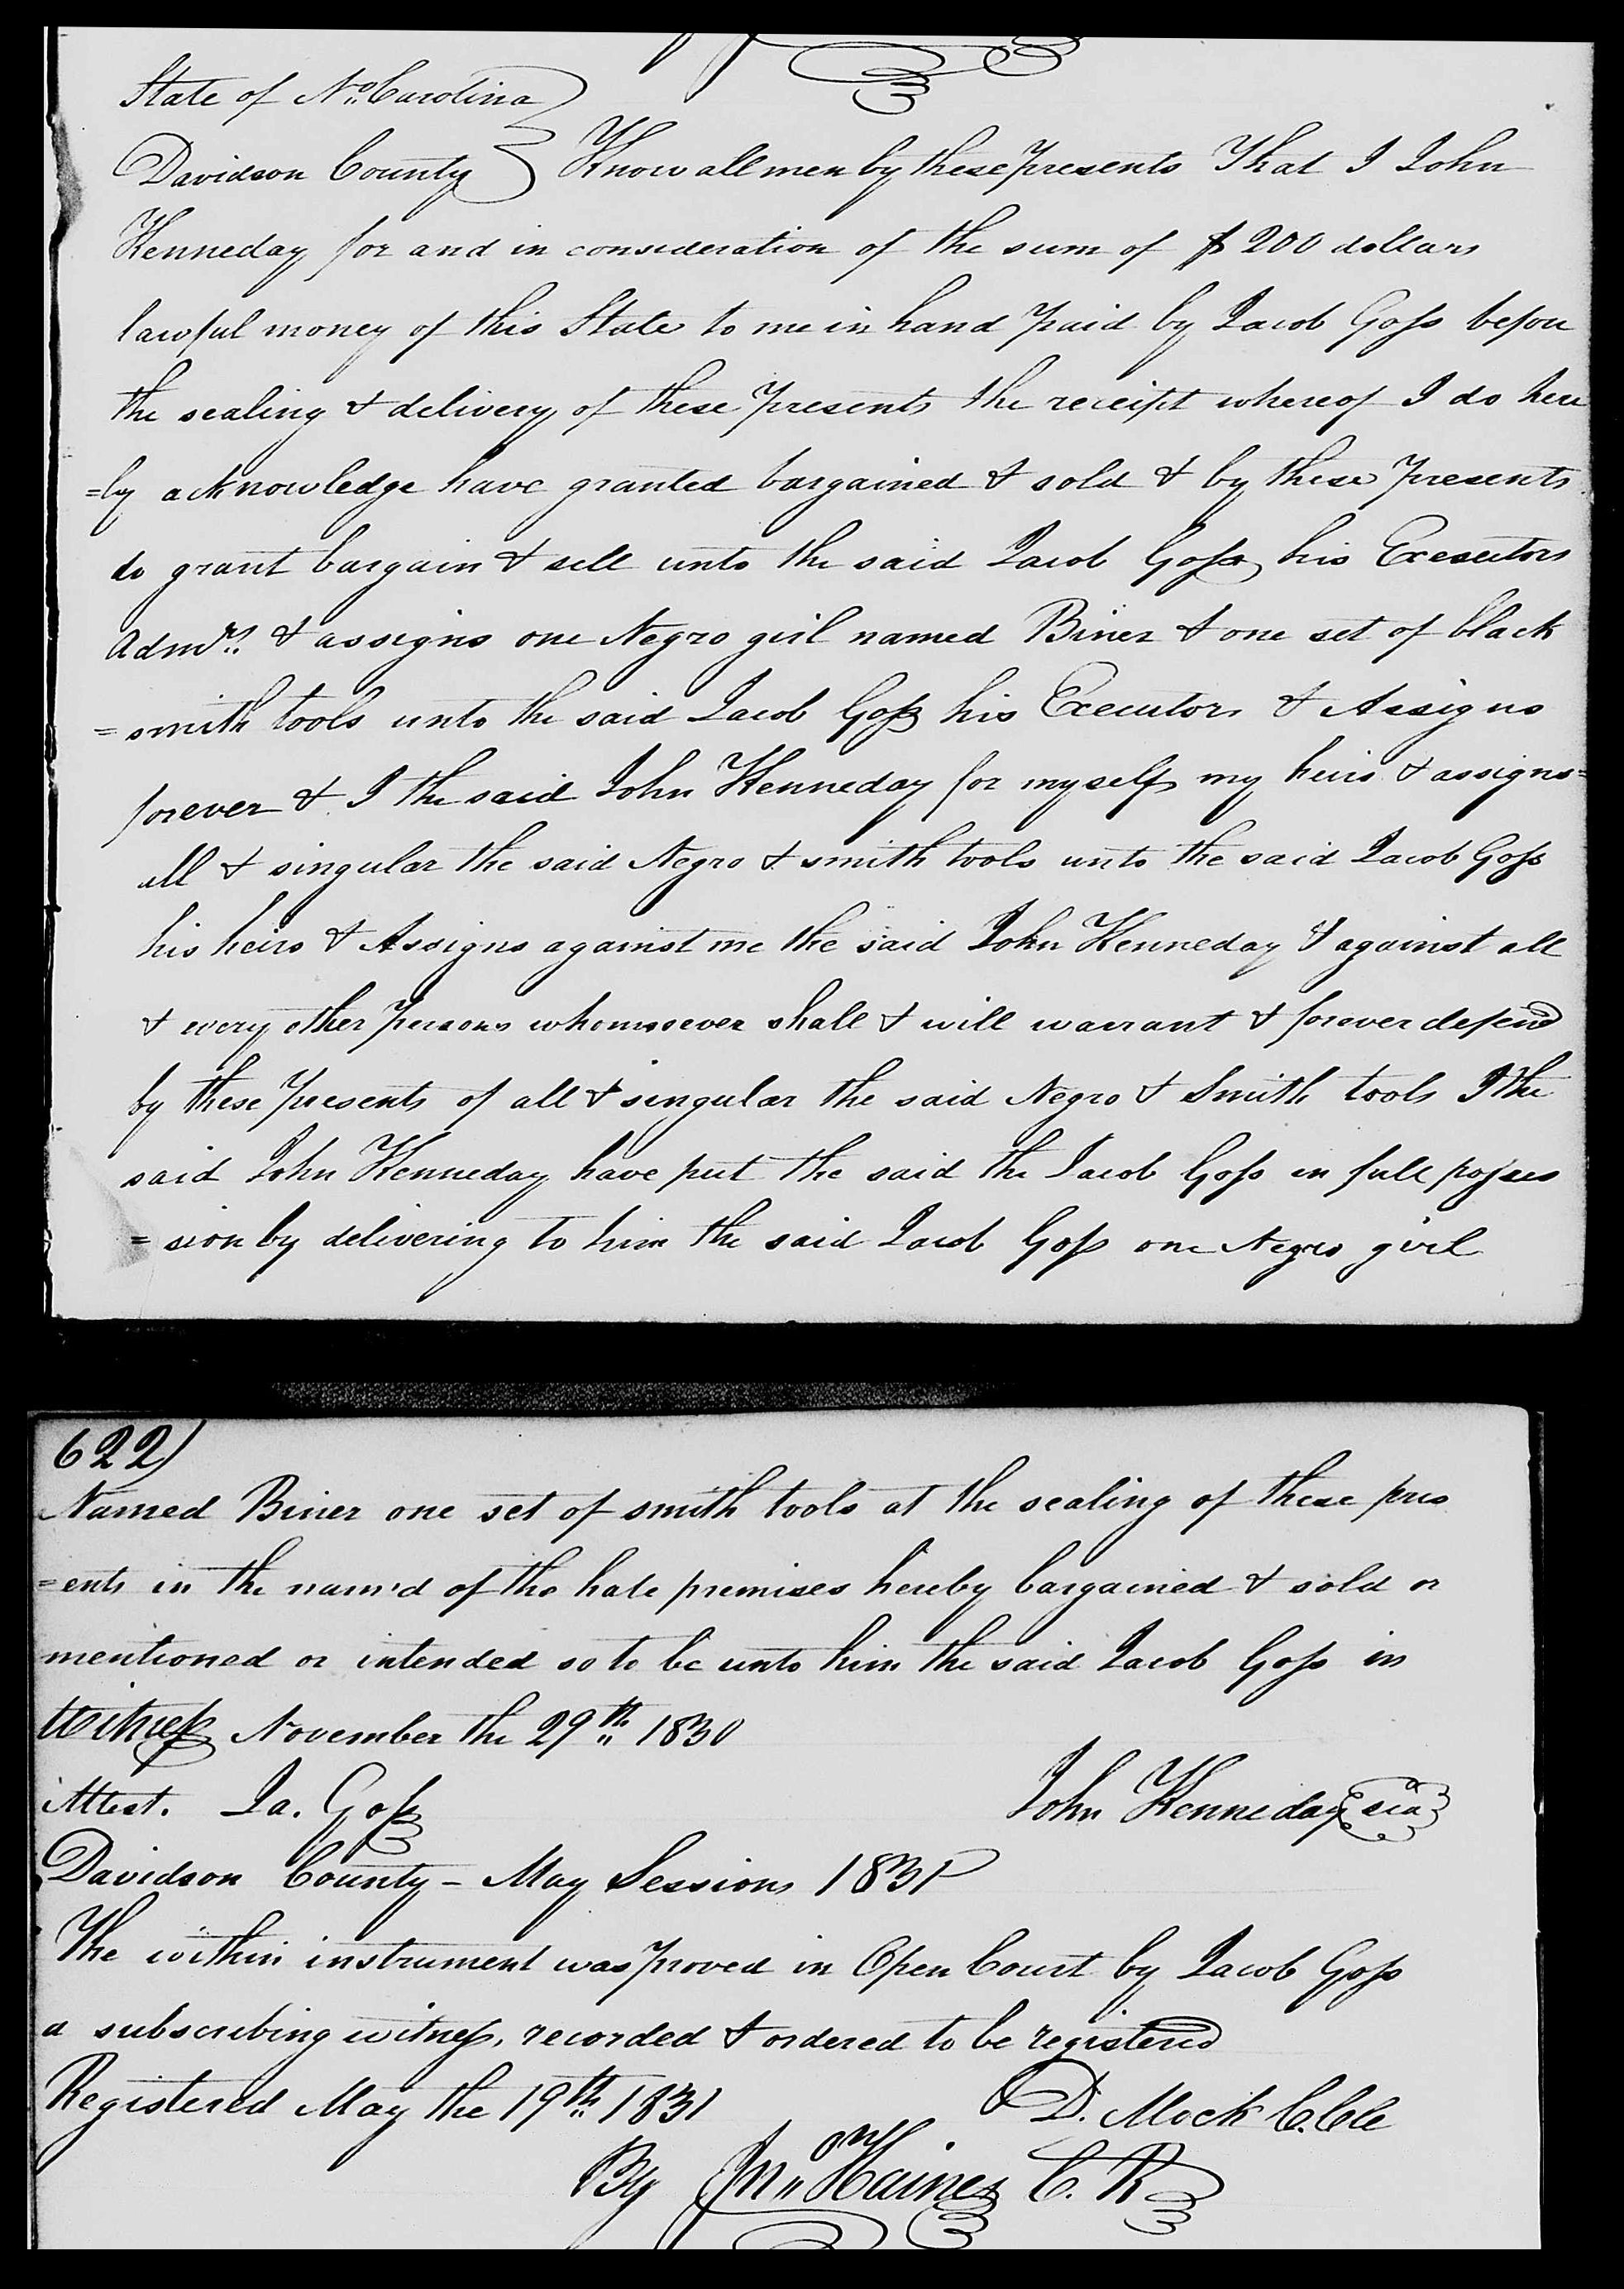 State of No. Carolina
Davidson County Know all men by these presents That I John
Kenneday for and in consideration of the sum of $200 dollars
lawful money of this State to me in hand paid by Jacob Goss before
the sealing & delivery of these presents the receipt whereof I do here
=by acknowledge have granted bargained & sold & by these presents
do grant bargain & sell unto the said Jacob Goss his Executors
Admrs. & assigns one Negro girl named Biner & one set of black
=smith tools unto the said Jacob Goss his Executors & Assigns
forever & I the said John Kenneday for myself my heirs & assigns=
all & singular the said Negro & smith tools unto the said Jacob Goss
his heirs & Assigns against me the said John Kenneday & against all
& every other persons whomsoever shall & will warrant & forever defend
by these presents of all & singular the said Negro & Smith tools I the
said John Kenneday have put the said the Jacob Goss in full posses
=sion by delivering to him the said Jacob Goss one Negro girl
622)
Named Biner one set of smith tools at the sealing of these pres
=ents in the nam'd of tho hale premises hereby bargained & sold or
mentioned or intended so to be unto him the said Jacob Goss in
Witness November the 29th 1830
Attest. Ja. Goss John Kenneday sea
Davidson County - May Sessions 1831
The within instrument was proved in Open Court by Jacob Goss
a subscribing witness, recorded & ordered to be registered
Registered May the 19th 1831 D. Mock C.Cle
By Jno. Haines C. R